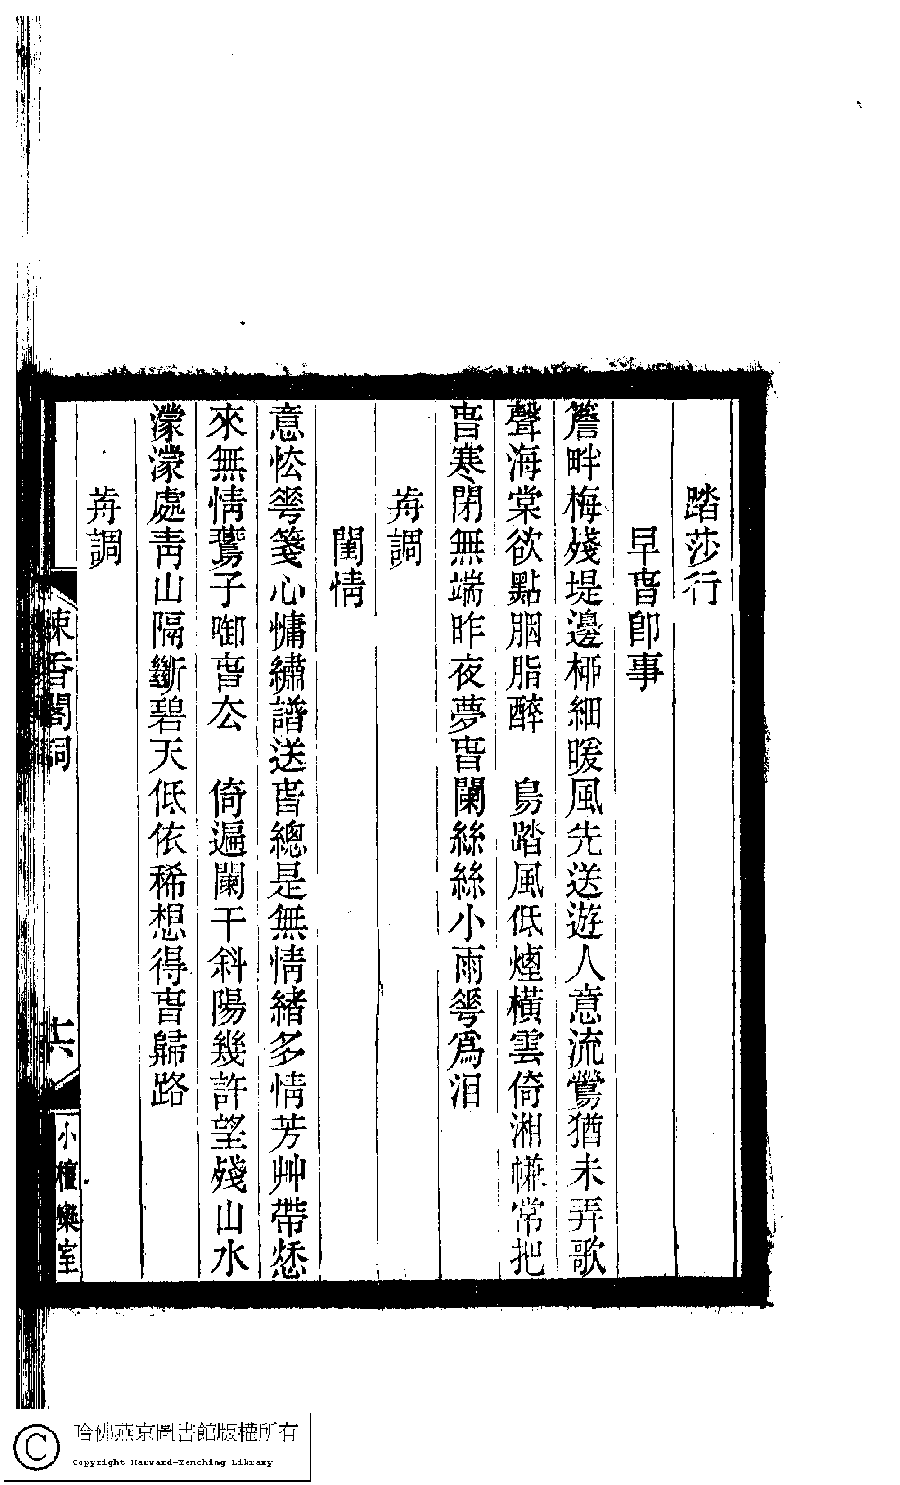 踏莎行
早旾卽事
簷畔梅殘堤邊桺細暖風先送遊人意流鶯猶未弄歌
聲海棠欲點胭脂醉　鳥踏風低煙橫雲倚湘㡘常把
旾寒閉無端昨夜夢旾闌絲絲小雨蕚爲泪
前調
閨情
意忪蕚箋心慵繡譜送旾總是無情緒多情芳艸帶愁
來無情鷰子啣旾厺　倚遍闌干斜陽幾許望殘山水
濛濛處靑山隔斷碧天低依稀想得旾歸路
前調
棟香閣詞
十六
小檀欒室
哈佛燕京圖書館版權所有
Copyright Harvard-Yenching Library